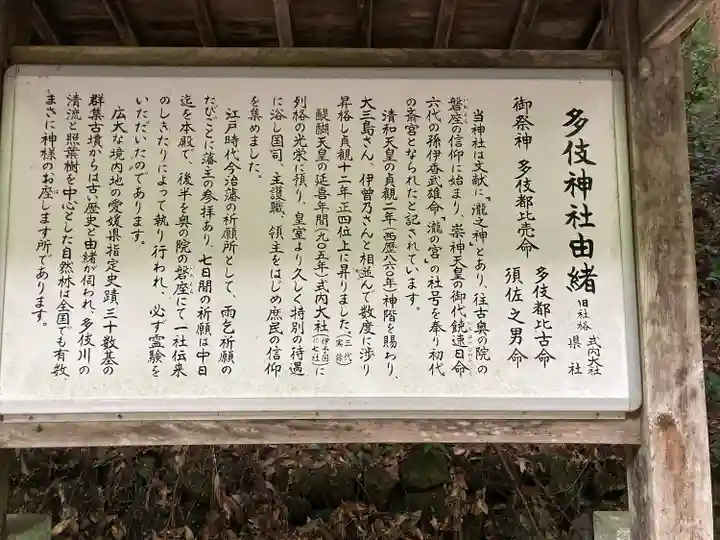 多伎神社由緒
旧社格
式内大社
県社
御祭神 多伎都比売命
多伎都比古命
須佐之男命
当神社は文献に「瀧之神」とあり、往古奥の院の
磐座の信仰に始まり、崇神天皇の御代饒速日命
六代の孫伊香武雄命「瀧の宮」の社号を奉り初代
の斎宮となられたと記されています。
清和天皇の貞観二年(西歴八六〇年)神階を賜わり、
大三島さん、伊曽乃さんと相並んで数度に渉り
昇格し貞観十二年正四位上に昇りました。(三代実録)
醍醐天皇の延喜年間(九〇五年)式内大社(伊予国に七社)に
列格の光栄に預り、皇室より久しく特別の待遇
に浴し国司、主護職、領主をはじめ庶民の信仰
を集めました。
江戸時代今治藩の祈願所として、雨乞祈願の
たびごとに藩主の参拝あり、七日間の祈願は中日
迄を本殿で、後半を奥の院の磐座にて一社伝来
のしきたりによって執り行われ、必ず霊験を
いただいたのであります。
広大な境内地の愛媛県指定史蹟三十数基の
群集古墳からは古い歴史と由緒が伺われ、多伎川の
清流と照葉樹を中心とした自然林は全国でも有数、
まさに神様のお座します所であります。